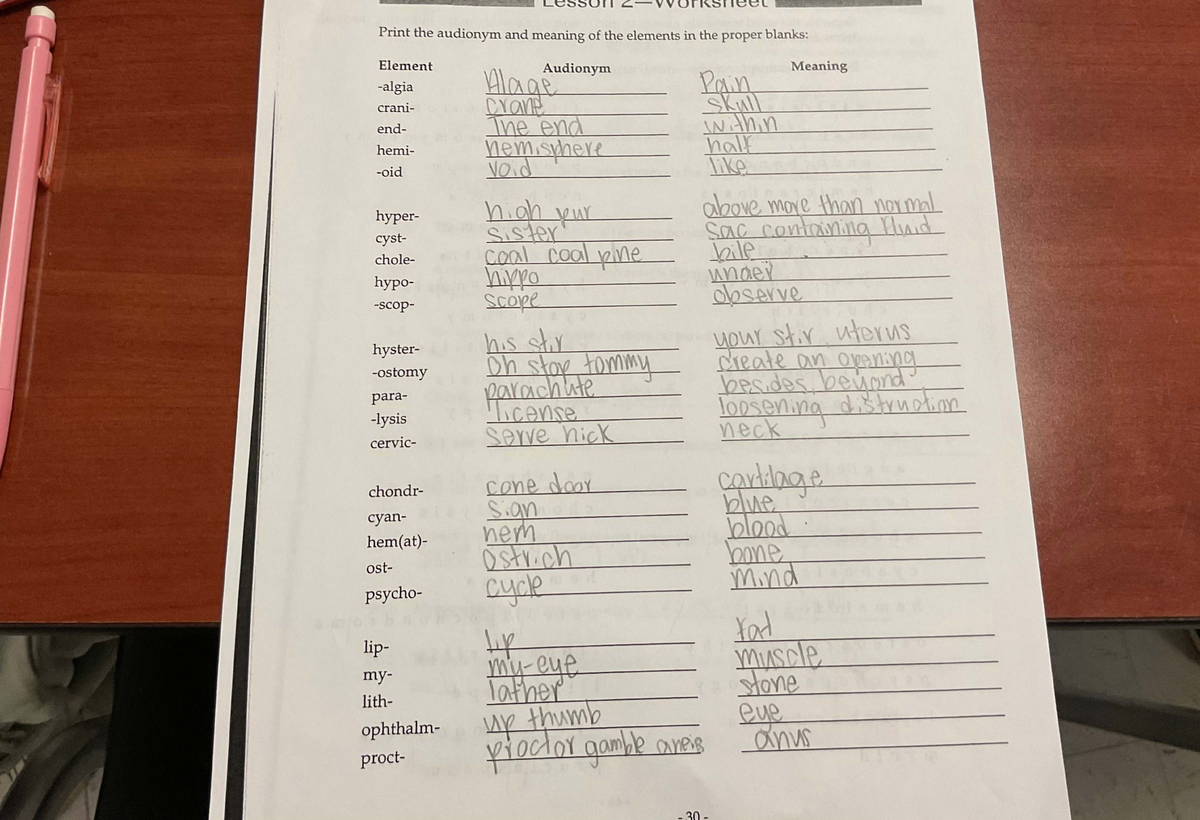 Lesson 2—Worksheet
Print the audionym and meaning of the elements in the proper blanks:
Element Audionym Meaning
-algia Alage Pain
crani- crane skull
end- The end within
hemi- hemisphere half
-oid void like
hyper- high pur above more than normal
cyst- sister sac containing fluid
chole- coal coal pine bile
hypo- hippo under
-scop- scope observe
hyster- his stir your stir uterus
-ostomy oh stop tommy create an opening
para- parachute besides, beyond
-lysis license loosening distruction
cervic- serve nick neck
chondr- cone door cartilage
cyan- sign blue
hem(at)- hem blood
ost- ostrich bone
psycho- cycle mind
lip- lip fat
my- my-eye muscle
lith- lather stone
ophthalm- up thumb eye
proct- proctor gamble aneis anus
- 30 -